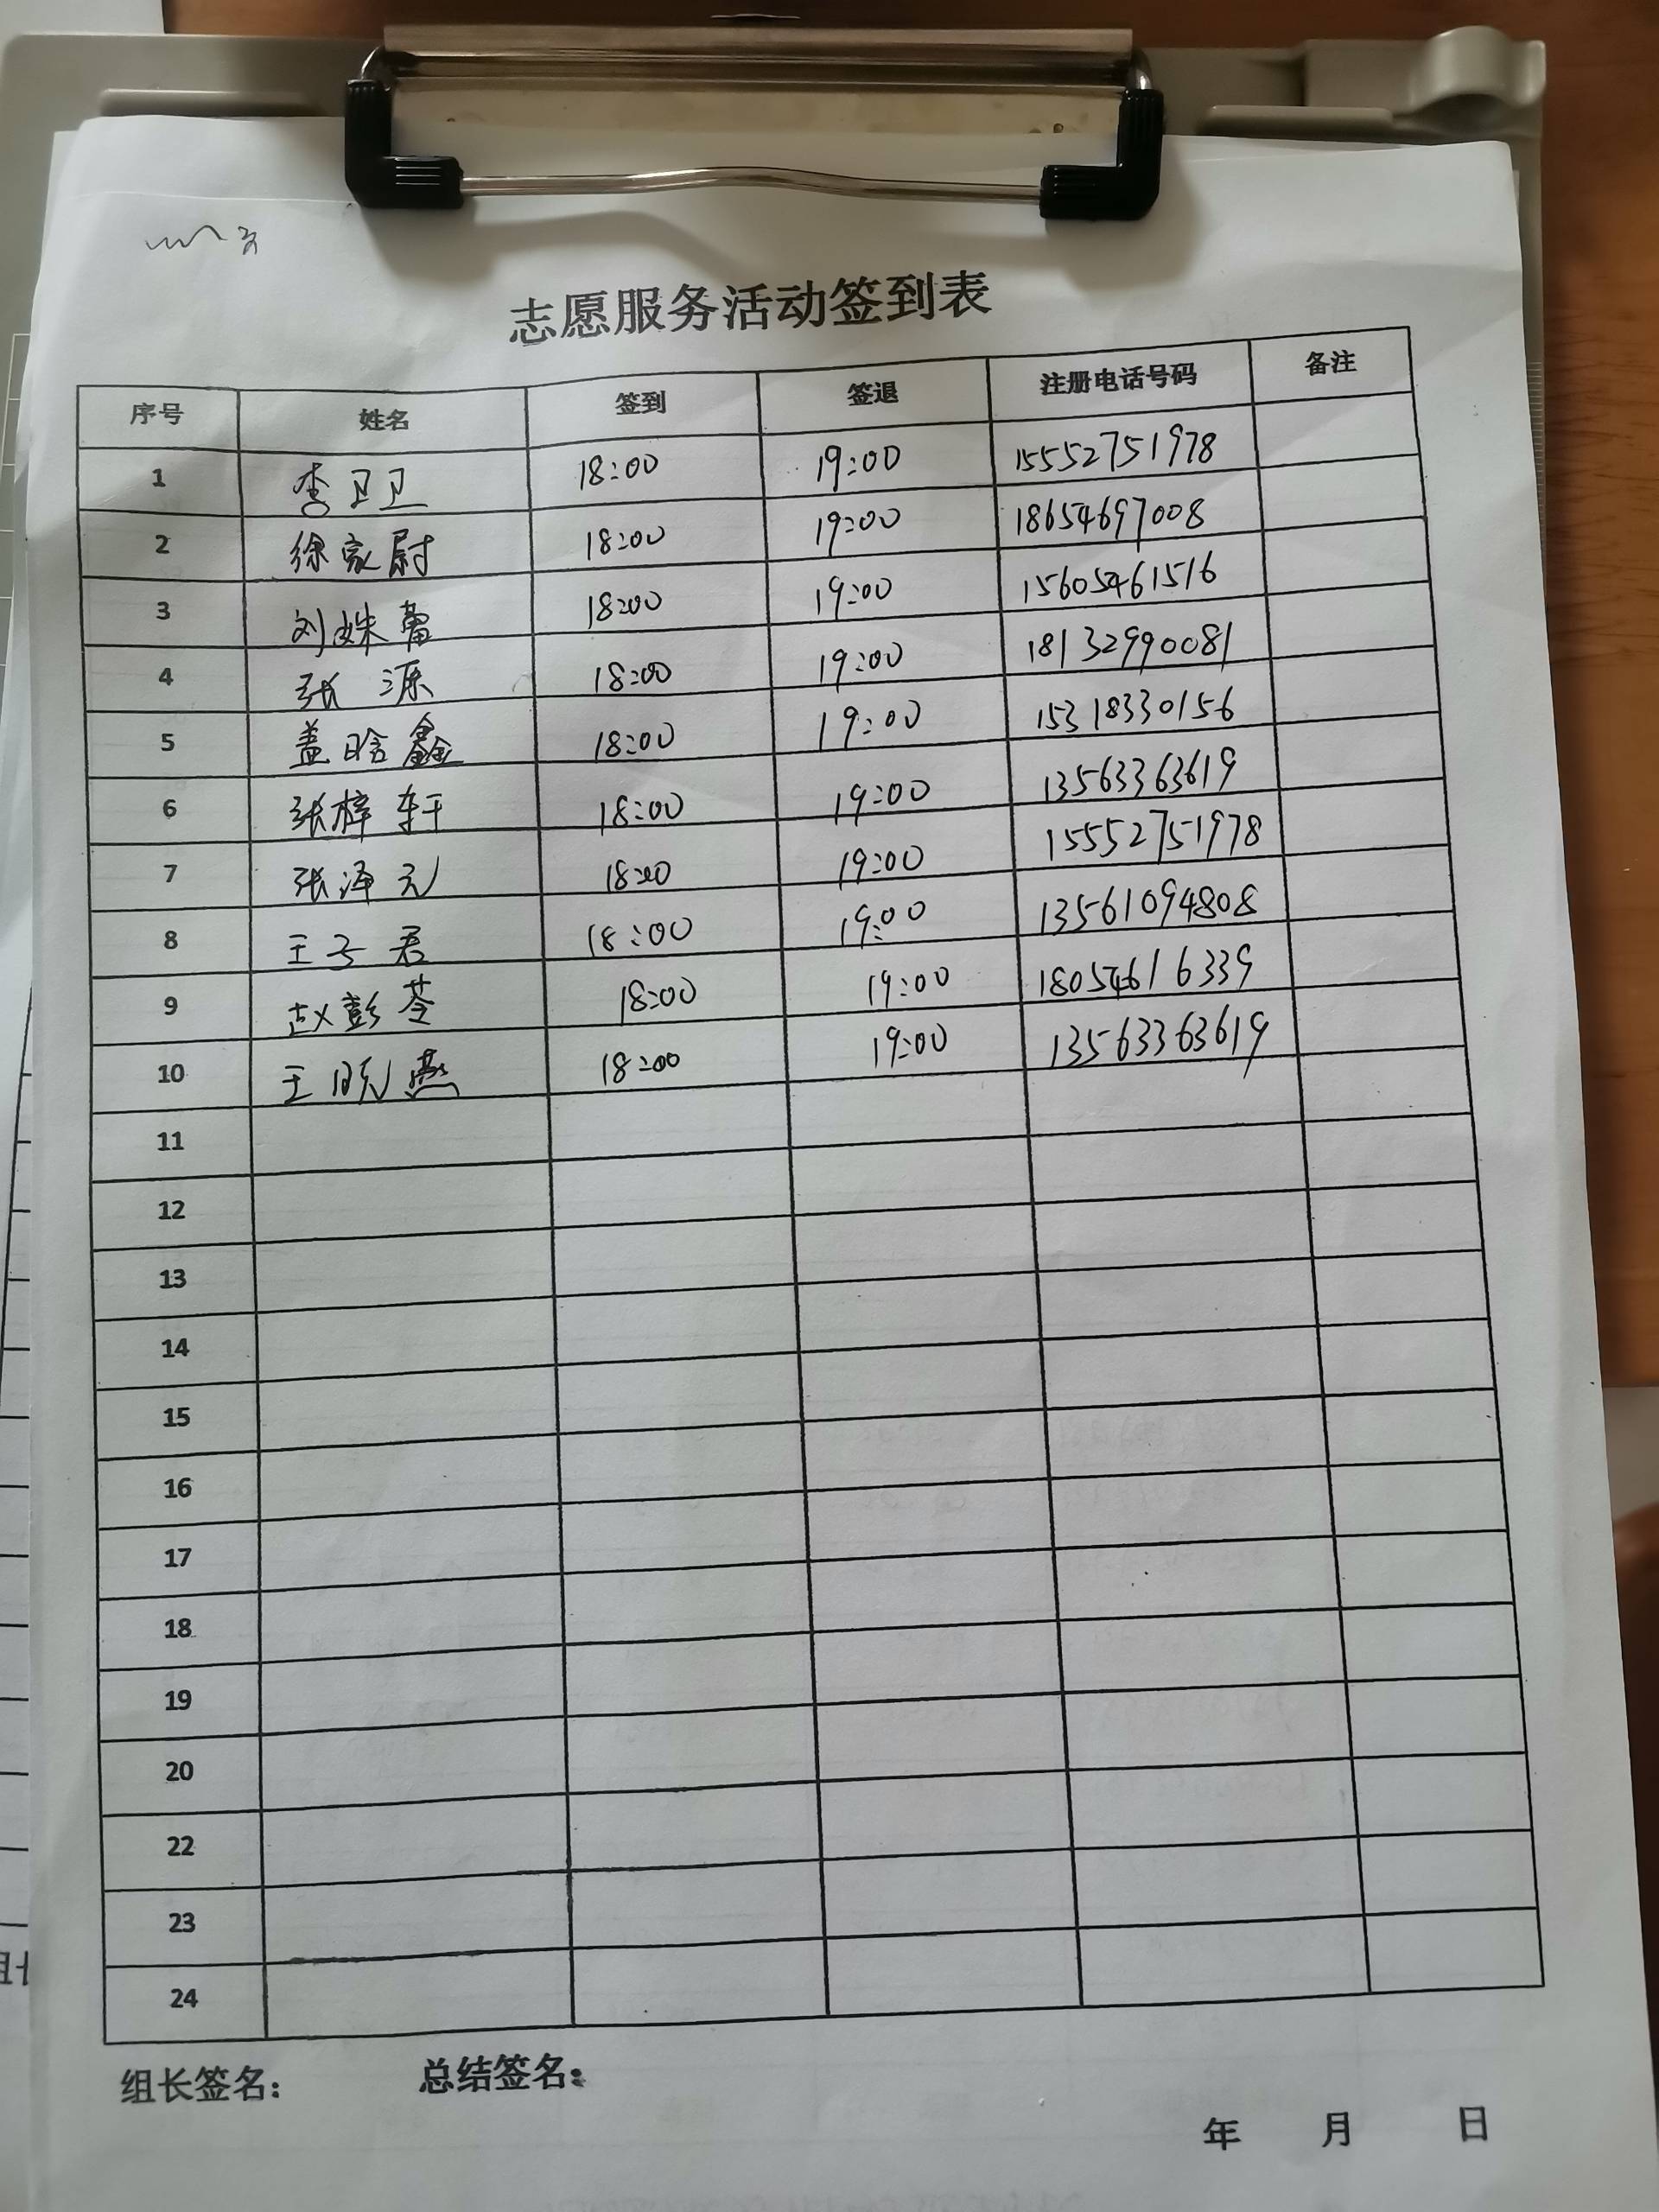 志愿服务活动签到表
序号 姓名 签到 签退 注册电话号码 备注
1 李卫卫 18:00 19:00 15552751978
2 徐家尉 18:00 19:00 18654697008
3 刘姝蕾 18:00 19:00 15605461516
4 张源 18:00 19:00 18132990081
5 盖晗鑫 18:00 19:00 15318330156
6 张梓轩 18:00 19:00 13563363619
7 张泽元 18:00 19:00 15552751978
8 王子君 18:00 19:00 13561094808
9 赵彭苓 18:00 19:00 18054616339
10 王晓燕 18:00 19:00 13563363619
11
12
13
14
15
16
17
18
19
20
22
23
24
组长签名： 总结签名：
年 月 日